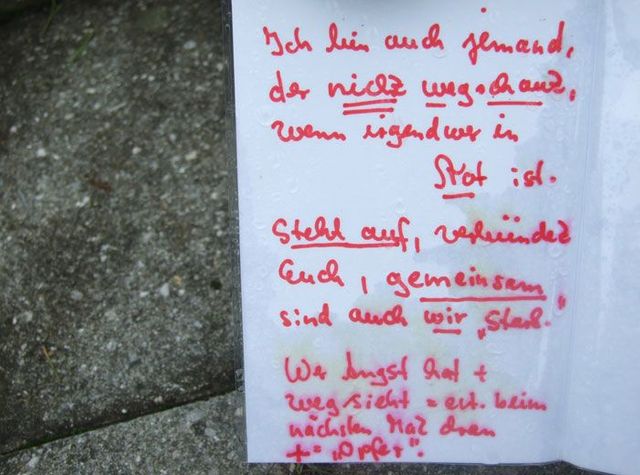 Ich bin auch jemand,
der nicht wegschaut,
wenn irgendwer in
Not ist.
Steht auf, verbündet
Euch, gemeinsam
sind auch wir „Stark."
Wer Angst hat +
wegsieht = evt. beim
nächsten Mal dran
+ = „Opfer".